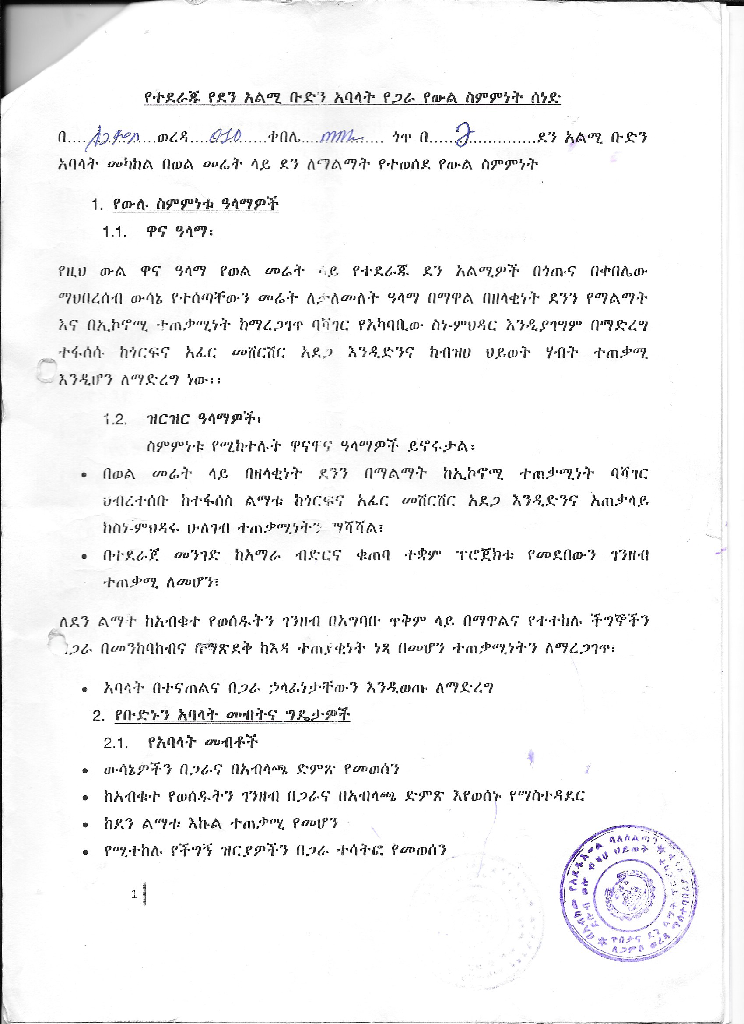 የተደራጁ የደን አልሚ ቡድን አባላት የጋራ የውል ስምምነት ሰነድ
በ.... ....ወረዳ.... ....ቀበሌ.... .... ጎጥ በ....2..............ደን አልሚ ቡድን
አባላት መካከል በወል መሬት ላይ ደን ለማልማት የተወሰደ የውል ስምምነት
1. የውሉ ስምምነቱ ዓላማዎች
1.1. ዋና ዓላማ፡
የዚህ ውል ዋና ዓላማ የወል መሬት ላይ የተደራጁ ደን አልሚዎች በጎጡና በቀበሌው
ማህበረሰብ ውሳኔ የተሰጣቸውን መሬት ለታለመለት ዓላማ በማዋል በዘላቂነት ደንን የማልማት
እና በኢኮኖሚ ተጠቃሚነት ከማረጋገጥ ባሻገር የአካባቢው ስነ-ምህዳር እንዲያገግም በማድረግ
ተፋሰሱ ከጎርፍና አፈር መሸርሸር አደጋ እንዲድንና ከብዝሀ ህይወት ሃብት ተጠቃሚ
እንዲሆን ለማድረግ ነው፡፡
1.2. ዝርዝር ዓላማዎች፡
ስምምነቱ የሚከተሉት ዋናዋና ዓላማዎች ይኖሩታል፡
• በወል መሬት ላይ በዘላቂነት ደንን በማልማት ከኢኮኖሚ ተጠቃሚነት ባሻገር
ህብረተሰቡ ከተፋሰስ ልማቱ ከጎርፍና አፈር መሸርሸር አደጋ እንዲድንና አጠቃላይ
ከስነ-ምህዳሩ ሁለገብ ተጠቃሚነትን ማሻሻል፡
• በተደራጀ መንገድ ከአማራ ብድርና ቁጠባ ተቋም ፕሮጀክቱ የመደበውን ገንዘብ
ተጠቃሚ ለመሆን፡
ለደን ልማት ከአብቁተ የወሰዱትን ገንዘብ በአግባቡ ጥቅም ላይ በማዋልና የተተከሉ ችግኞችን
በጋራ በመንከባከብና በማጽደቅ ከእዳ ተጠያቂነት ነጻ በመሆን ተጠቃሚነትን ለማረጋገጥ፡
• አባላት በተናጠልና በጋራ ኃላፊነታቸውን እንዲወጡ ለማድረግ
2. የቡድኑን አባላት መብትና ግዴታዎች
2.1. የአባላት መብቶች
• ውሳኔዎችን በጋራና በአብላጫ ድምጽ የመወሰን
• ከአብቁተ የወሰዱትን ገንዘብ በጋራና በአብላጫ ድምጽ እየወሰኑ የማስተዳደር
• ከደን ልማቱ እኩል ተጠቃሚ የመሆን
• የሚተከሉ የችግኝ ዝርያዎችን በጋራ ተሳትፎ የመወሰን
1